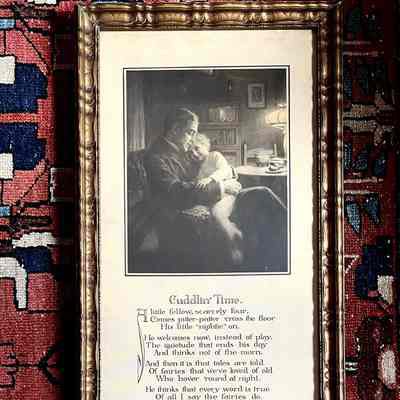 Cuddlin' Time.
A little fellow, scarcely four,
Comes pitter-patter 'cross the floor
His little "nightie" on.
He welcomes now, instead of play,
The quietude that ends his day
And thinks not of the morn.
And then it is that tales are told
Of fairies that we've loved of old
Who hover 'round at night.
He thinks that every word is true
Of all I say the fairies do,